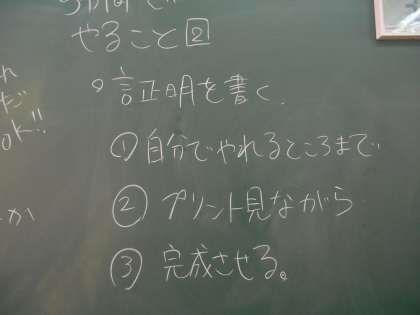 やること2
。証明を書く.
① 自分でやれるところまで
② プリント見ながら
③ 完成させる。
ok!!